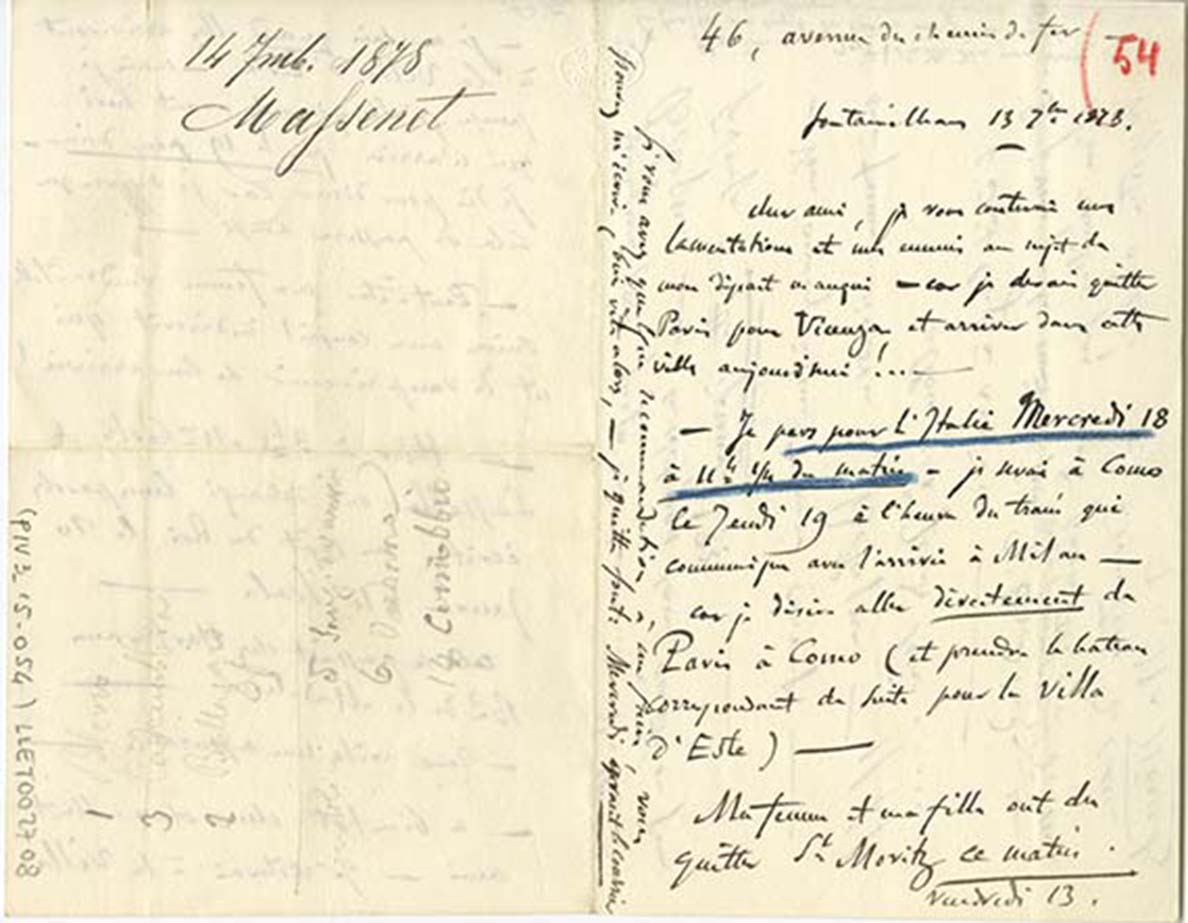 14 7mb. 1878
Massenet
46, avenue du chemin de fer
54
Fontainebleau 13 7bre 1878.
cher ami, je vous conterai mes
lamentations et mes ennuis au sujet de
mon départ manqué — car je devais quitter
Paris pour Vicenza et arriver dans cette
ville aujourd'hui !...
— Je pars pour l'Italie Mercredi 18
à 11h 1/4 du matin — je serai à Como
le Jeudi 19 à l'heure du train qui
communique avec l'arrivée à Milan —
car je désire aller directement de
Paris à Como (et prendre le bateau
correspondant de suite pour la Villa
d'Este) —
Ma femme et ma fille ont dû
quitter St Moritz ce matin.
Vendredi 13.
Si vous avez quelque recommandation à me faire, vous
pouvez m'écrire (bien vite alors, — je quitte Font. Mercredi avant
1
3
2
5
6
18 Cernobbio
LLET0072708
(PIV 3.2) 450.SL